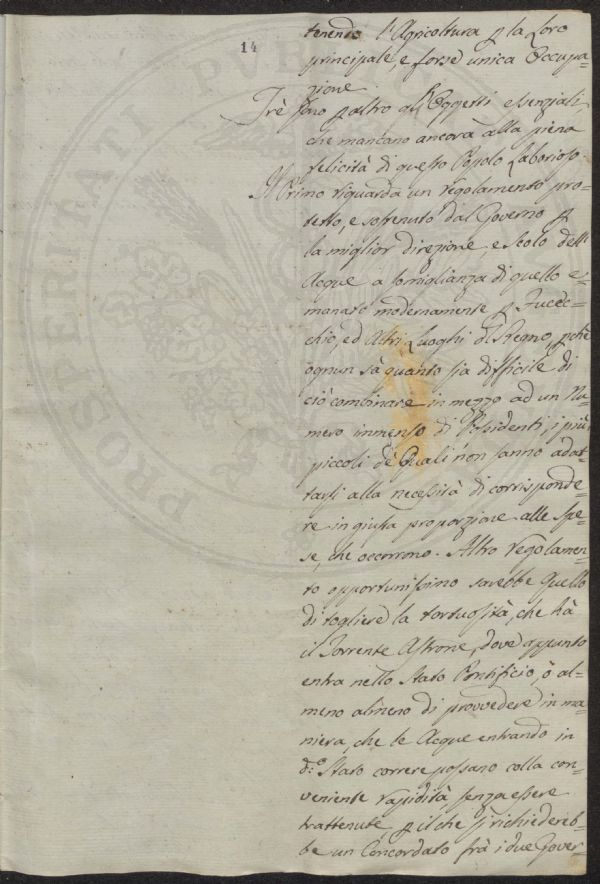 14
tenendo l'Agricoltura p la Loro
principale, e forse unica Occupa=
zione.
Trè sono p altro gli Oggetti essenziali,
che mancano ancora alla piena
felicità di questo Popolo Laborioso.
Il Primo riguarda un regolamento pro=
tetto, e sostenuto dal Governo p
la miglior direzione, e scolo delle
Acque a somiglianza di quello e=
manato modernamente p Fucec=
chio, ed Altri Luoghi del Regno, pchè
ognun sà quanto sia difficile di
ciò combinare in mezzo ad un Nu=
mero immenso di Possidenti, i più
piccoli de Quali non sanno adat=
tarsi alla necessità di corrisponde=
re in giusta proporzione alle spe=
se, che occorrono. Altro regolamen=
to opportunissimo sarebbe quello
di togliere la tortuosità, che hà
il Torrente Astrone, dove appunto
entra nello Stato Pontificio, ò al=
meno almeno di provvedere in ma=
niera, che le Acque entrando in
d.o Stato correre possano colla con=
veniente rapidità, senza essere
trattenute, p il che si richiedereb=
be un Concordato frà i due Gover=
PROSPERITATI PUBLICAE